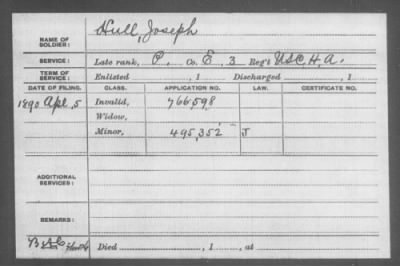 NAME OF SOLDIER: Hull, Joseph
SERVICE: Late rank, P. Co. E, 3 Reg't U.S.C.H.A.
TERM OF SERVICE: Enlisted , 1 Discharged , 1
DATE OF FILING. CLASS. APPLICATION NO. LAW. CERTIFICATE NO.
1890 Apl. 5 Invalid, 766,598
Widow,
Minor, 495,352 J
ADDITIONAL SERVICES:
REMARKS:
Died , 1 , at